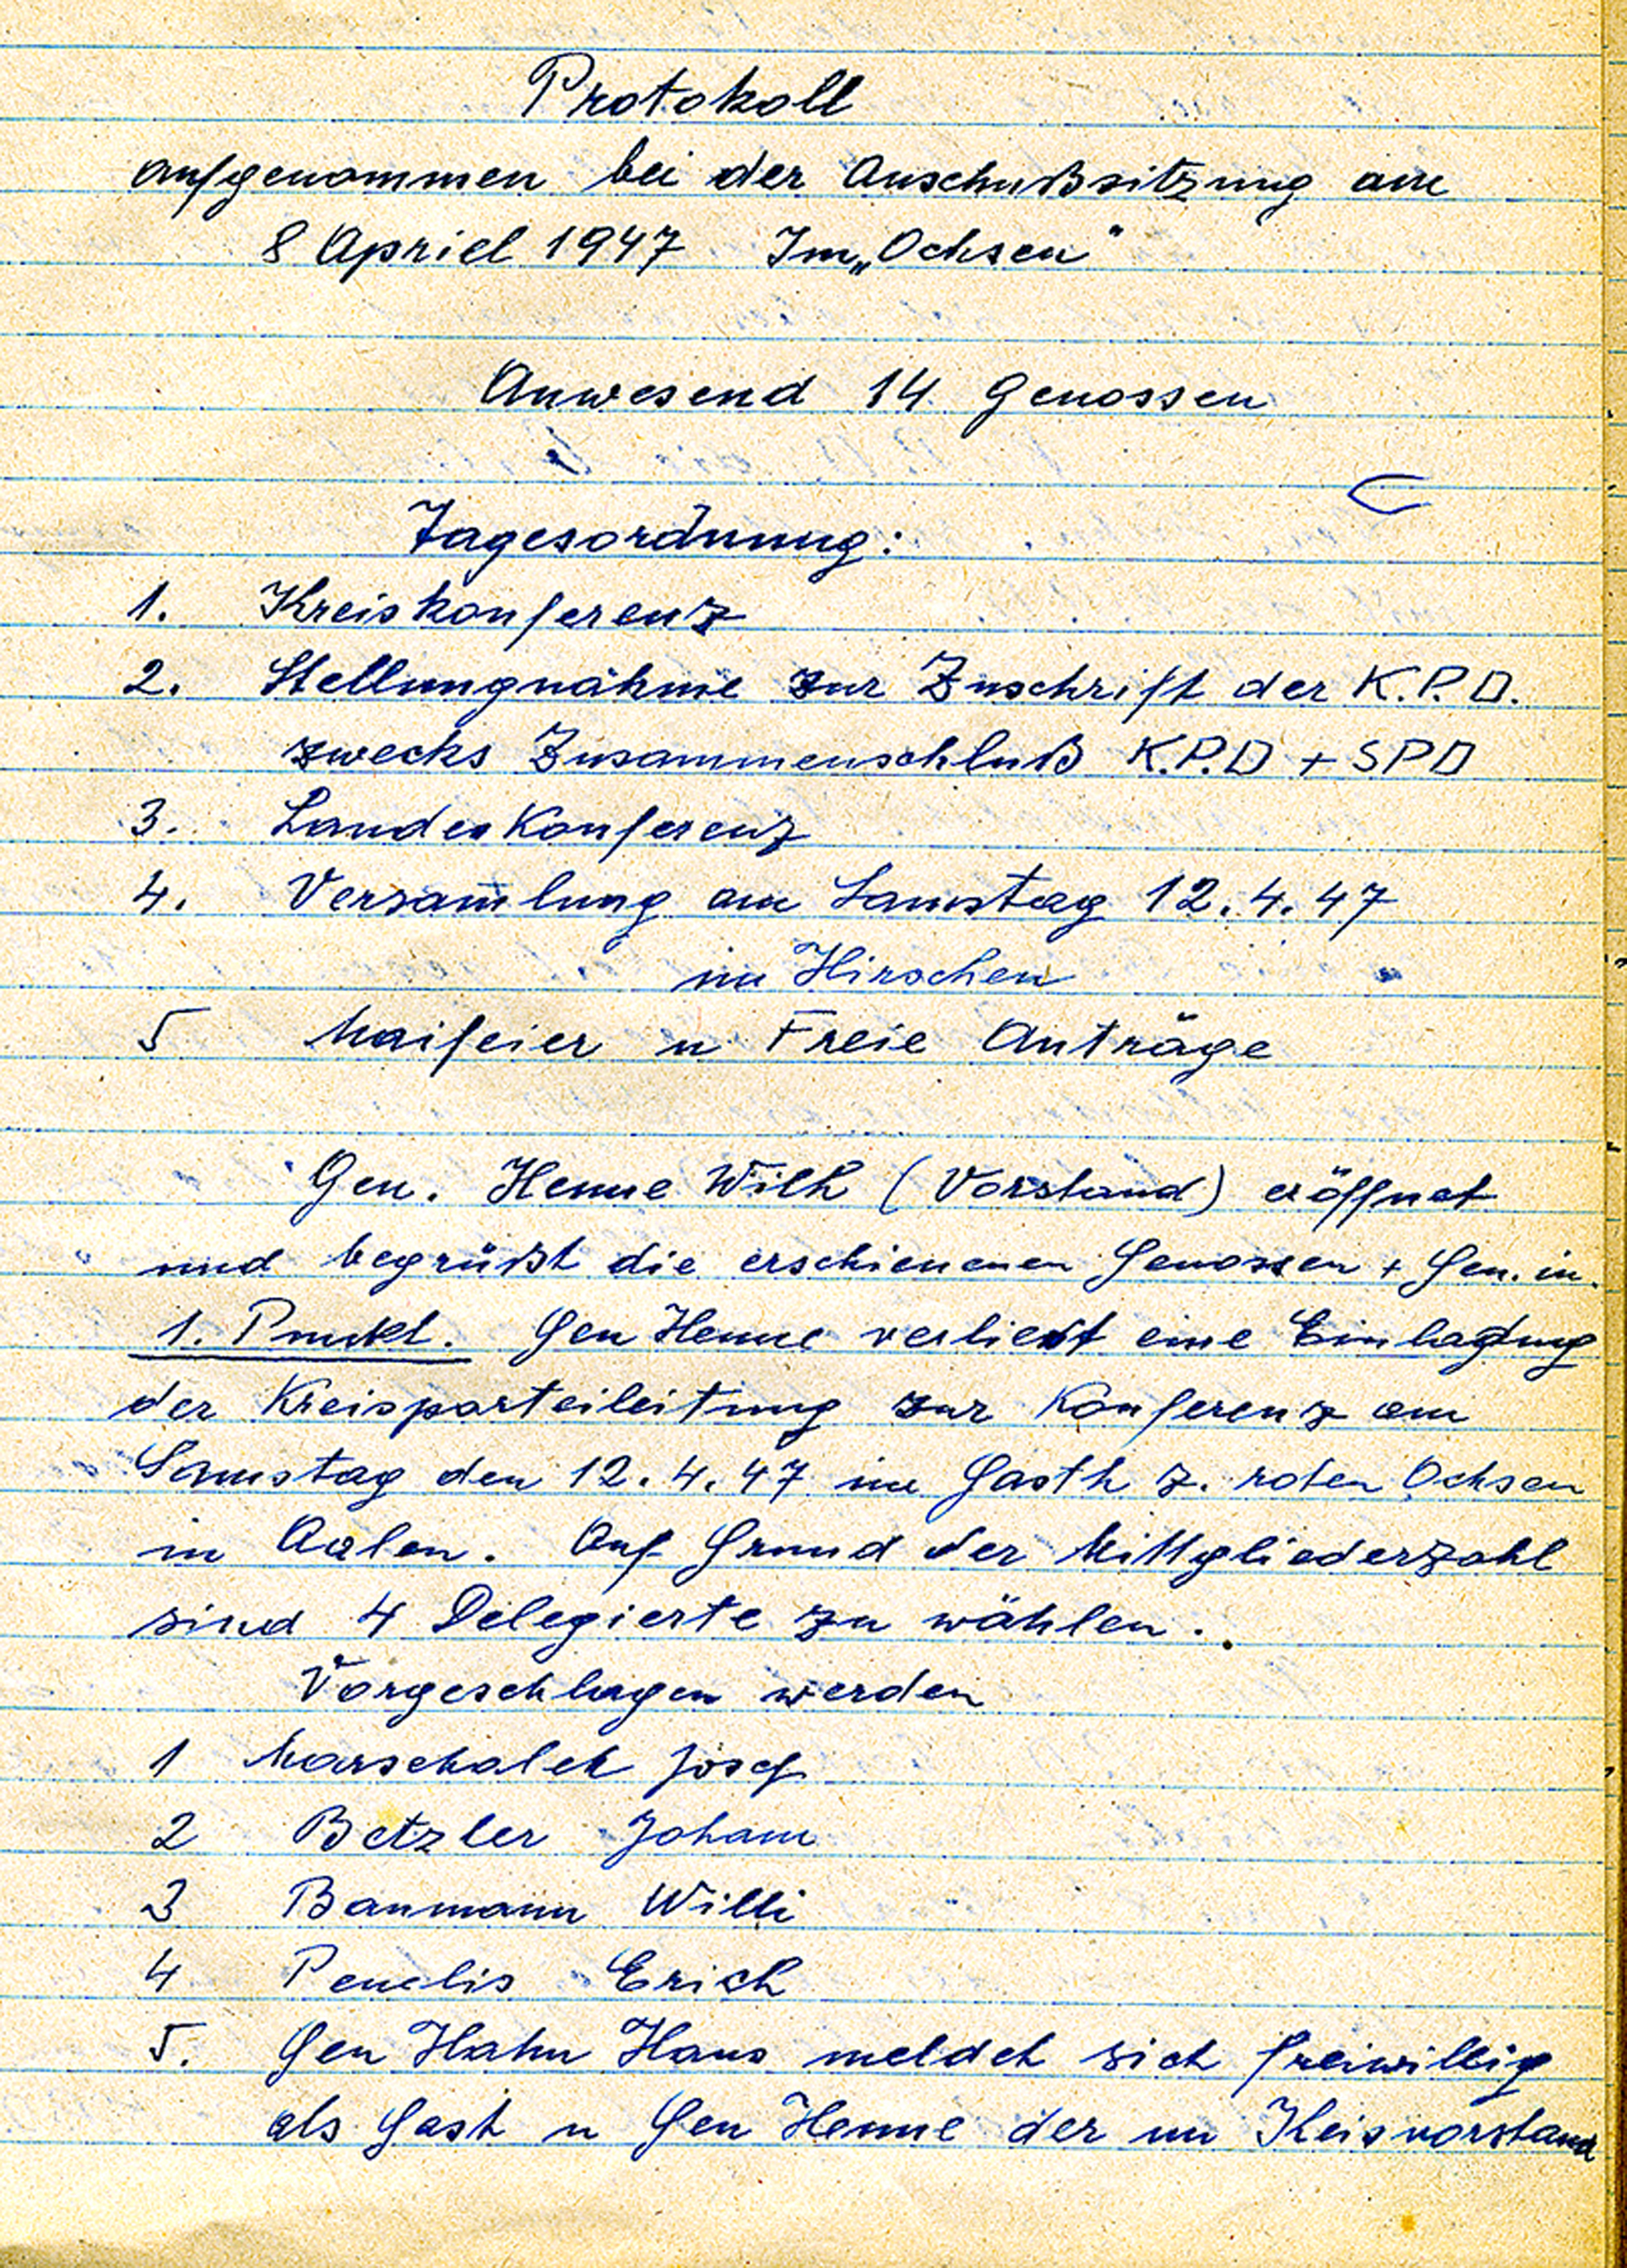 Protokoll
aufgenommen bei der Auschußsitzung am
8 Apriel 1947 Im „Ochsen"
Anwesend 14 Genossen
Tagesordnung:
1. Kreiskonferenz
2. Stellungnahme zur Zuschrift der K.P.D.
zwecks Zusammenschluß K.P.D + SPD
3. Landeskonferenz
4. Versam̄lung am Samstag 12.4.47
im Hirschen
5 Maifeier u Freie Anträge
Gen. Henne Wilh (Vorstand) eröffnet
und begrüßt die erschienenen Genossen + Gen. in.
1. Punkt. Gen Henne verließt eine
der Kreisparteileitung zur Konferenz am
Samstag den 12.4.47 im Gasth z. roten Ochsen
in Aalen. Auf Grund der Mittgliederzahl
sind 4 Delegierte zu wählen.
Vorgeschlagen werden
1 Marschalek Josef
2 Betzler Johann
3 Baumann Willi
4 Erich
5. Gen Hahn Hans meldet sich freiwillig
als Gast u Gen Henne der im Keisvorstand